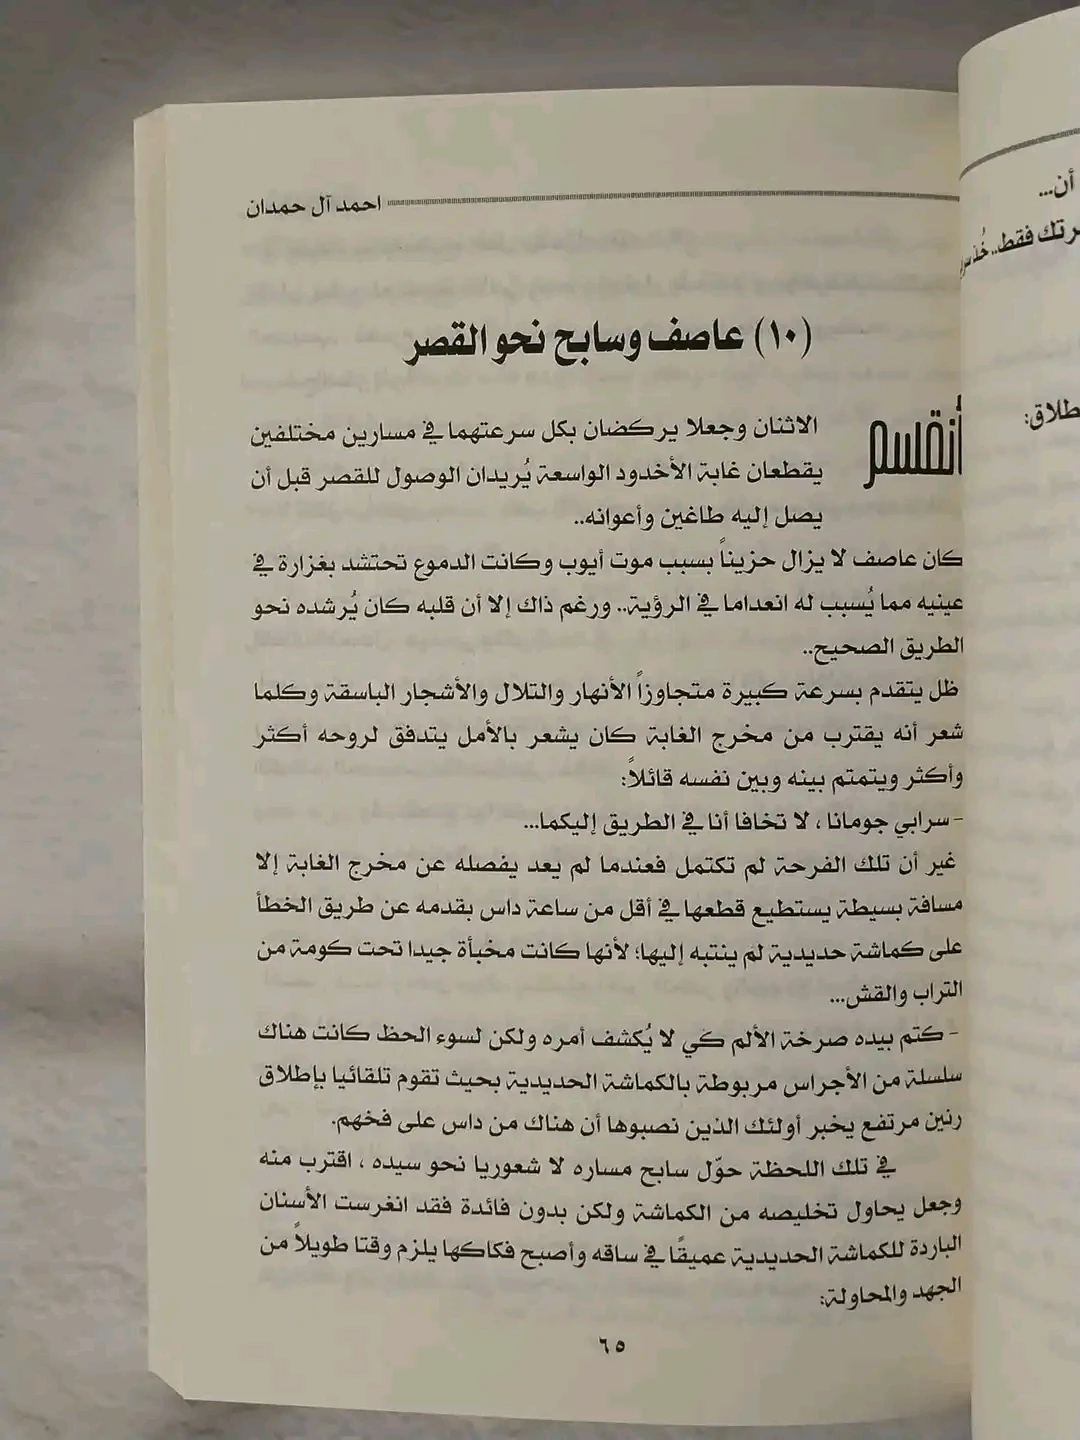 احمد آل حمدان
(١٠) عاصف وسابح نحو القصر
أنقسم الاثنان وجعلا يركضان بكل سرعتهما في مسارين مختلفين
يقطعان غابة الأخدود الواسعة يُريدان الوصول للقصر قبل أن
يصل إليه طاغين وأعوانه..
كان عاصف لا يزال حزيناً بسبب موت أيوب وكانت الدموع تحتشد بغزارة في
عينيه مما يُسبب له انعداما في الرؤية.. ورغم ذاك إلا أن قلبه كان يُرشده نحو
الطريق الصحيح..
ظل يتقدم بسرعة كبيرة متجاوزاً الأنهار والتلال والأشجار الباسقة وكلما
شعر أنه يقترب من مخرج الغابة كان يشعر بالأمل يتدفق لروحه أكثر
وأكثر ويتمتم بينه وبين نفسه قائلاً:
-سرابي جومانا، لا تخافا أنا في الطريق إليكما...
غير أن تلك الفرحة لم تكتمل فعندما لم يعد يفصله عن مخرج الغابة إلا
مسافة بسيطة يستطيع قطعها في أقل من ساعة داس بقدمه عن طريق الخطأ
على كماشة حديدية لم ينتبه إليها؛ لأنها كانت مخبأة جيدا تحت كومة من
التراب والقش...
- كتم بيده صرخة الألم كي لا يُكشف أمره ولكن لسوء الحظ كانت هناك
سلسلة من الأجراس مربوطة بالكماشة الحديدية بحيث تقوم تلقائيا بإطلاق
رنين مرتفع يخبر أولئك الذين نصبوها أن هناك من داس على فخهم.
في تلك اللحظة حوّل سابح مساره لا شعوريا نحو سيده، اقترب منه
وجعل يحاول تخليصه من الكماشة ولكن بدون فائدة فقد انغرست الأسنان
الباردة للكماشة الحديدية عميقًا في ساقه وأصبح فكاكها يلزم وقتا طويلاً من
الجهد والمحاولة:
٦٥
أن...
فقط.. خُذ